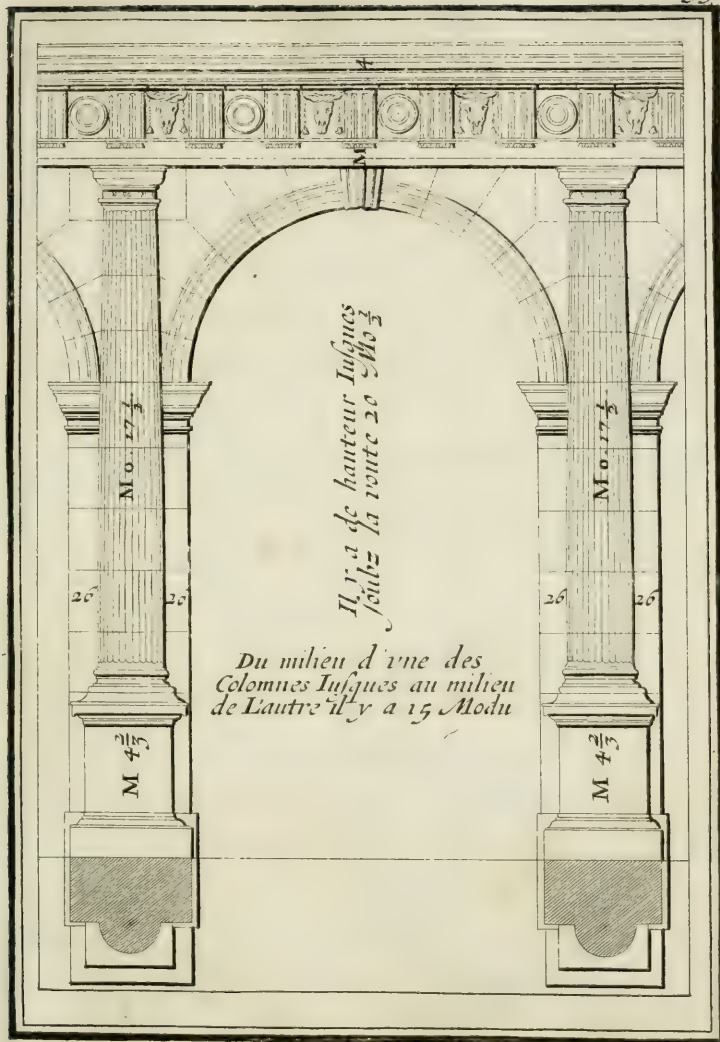 M 4
Mo. 17 1/2
Mo. 17 1/2
Il y a de hauteur Iuſques
ſoubz la voute 20 Mo 1/2
26 26 26 26
Du milieu d'vne des
Colomnes Iuſques au milieu
de L'autre il y a 15 Modu
M 4 2/3
M 4 2/3